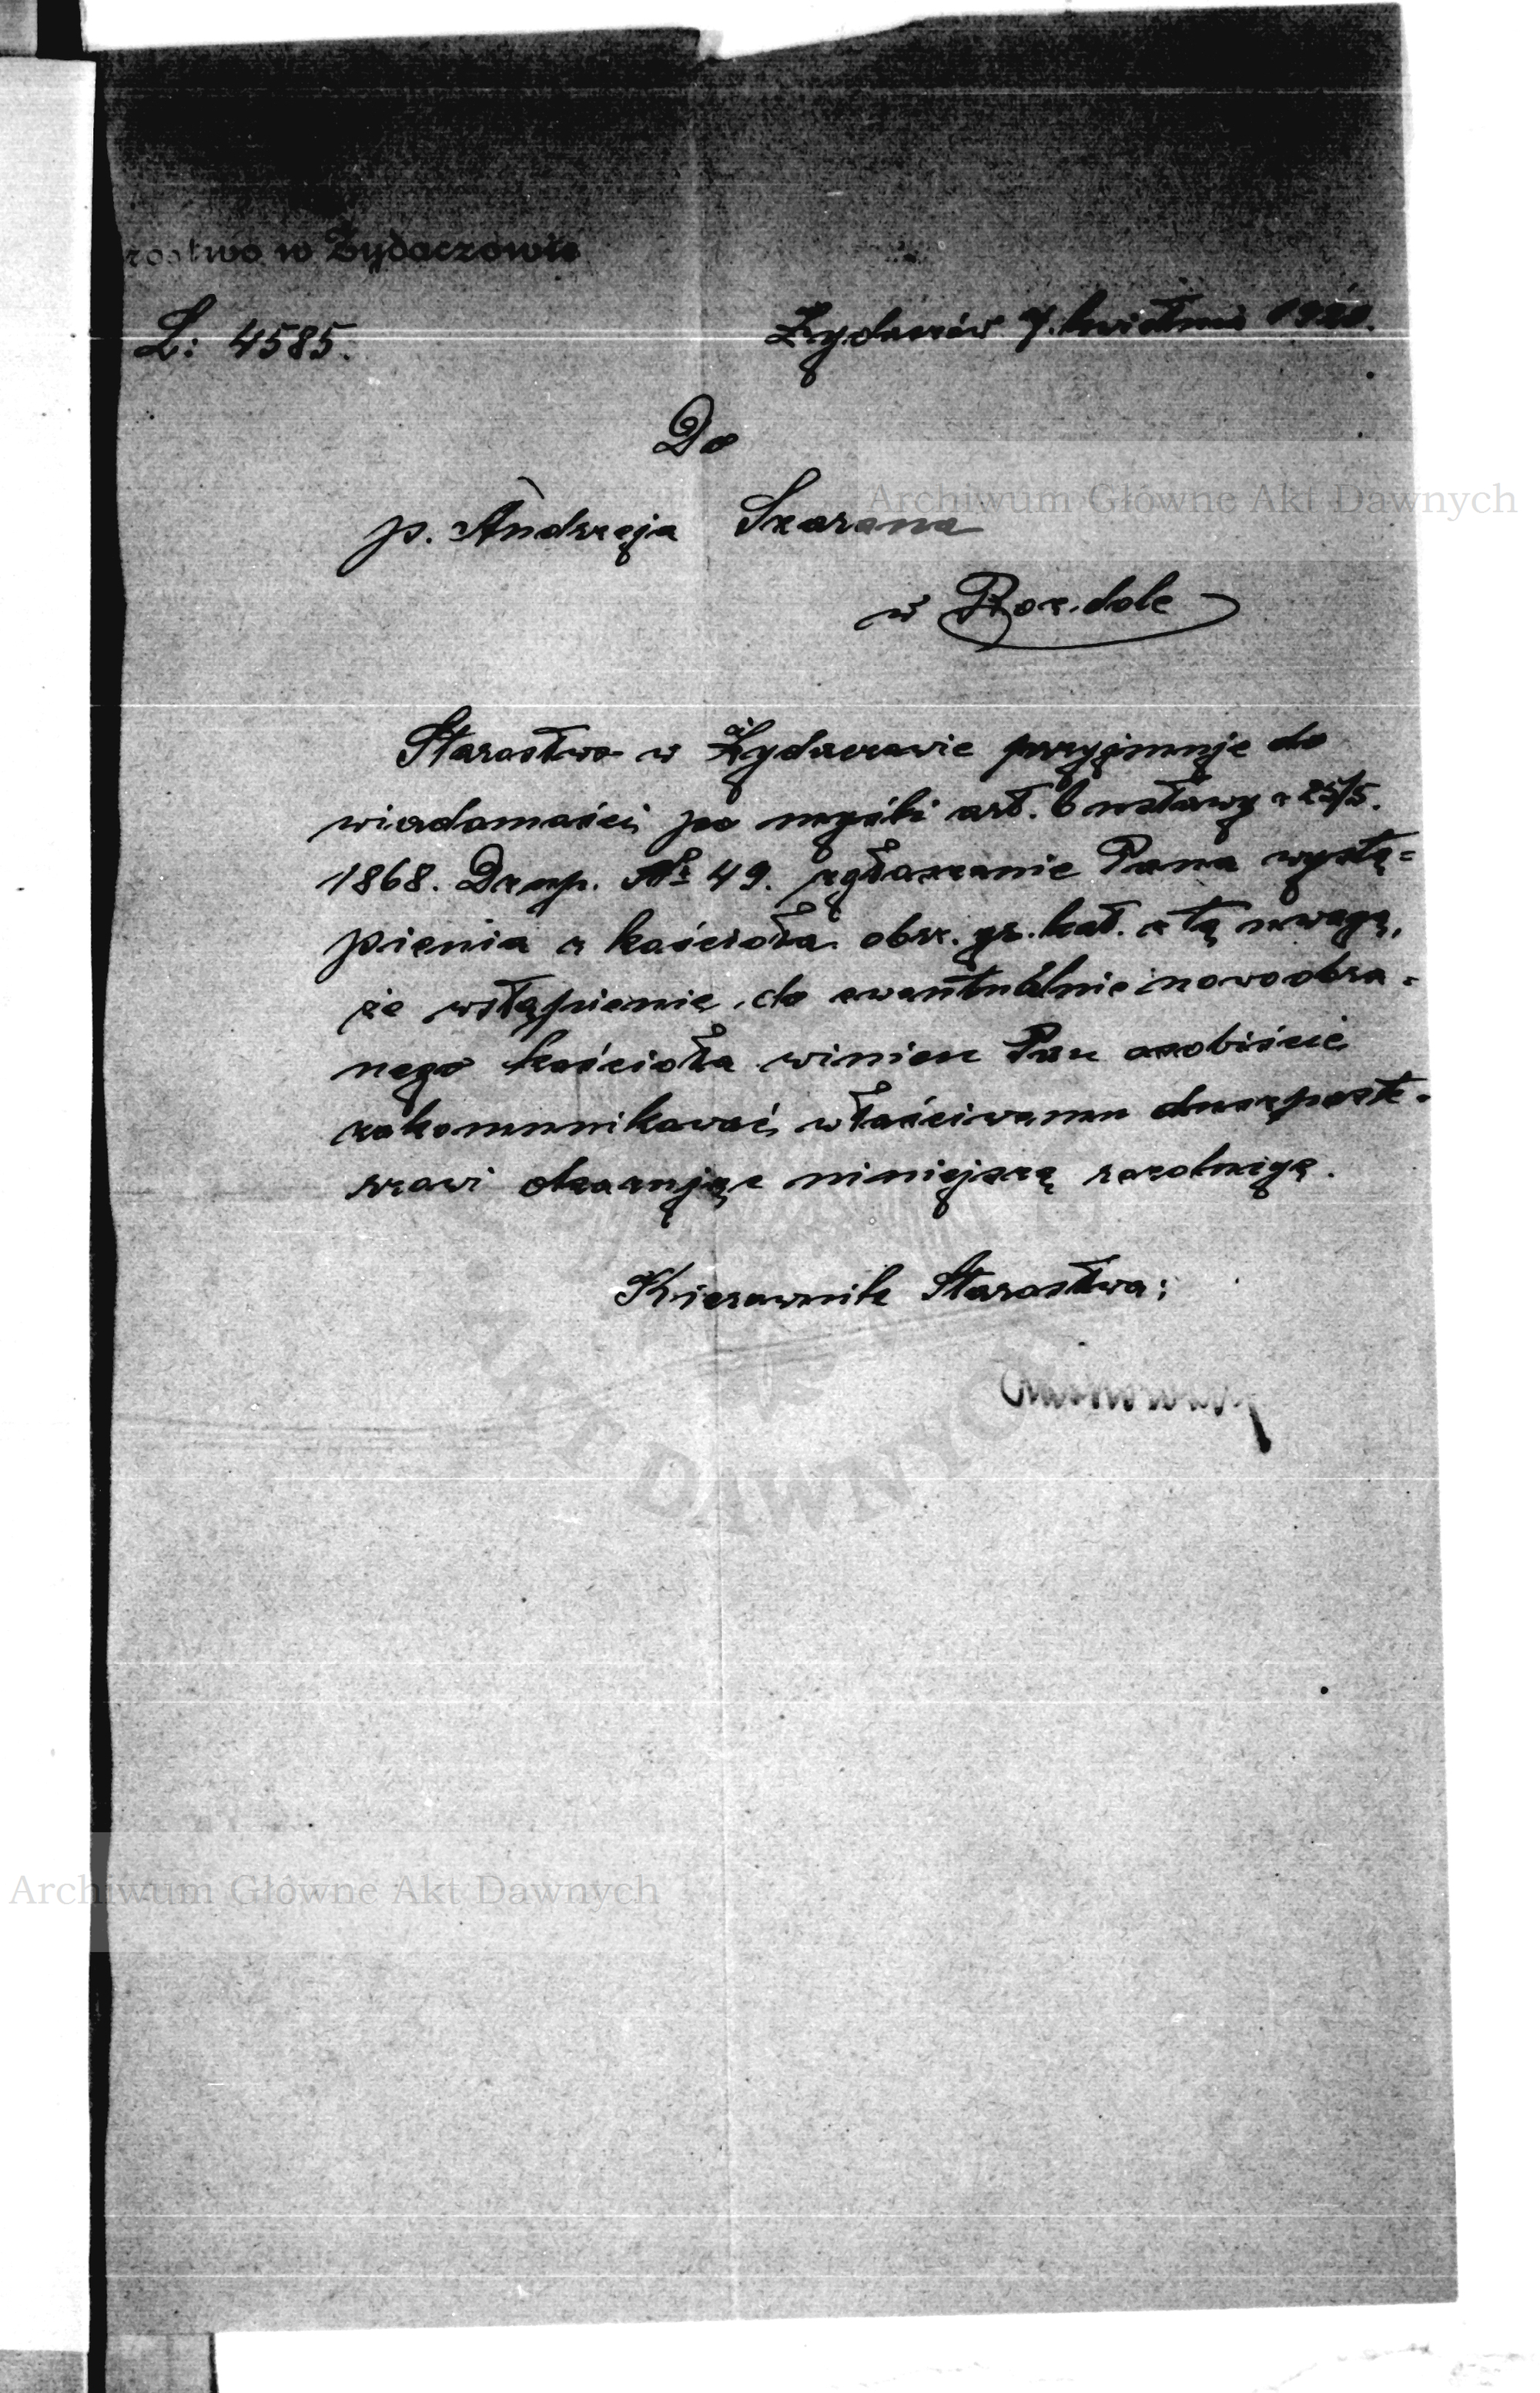 rostwo w Żydaczowie
L: 4585.
Żydaczów 7. kwietnia 1920.
Do
p. Andrzeja Skarana
w Rozdole
Starostwo w Żydaczowie przyjmuje do
wiadomości po myśli art. 6 ustawy z 25/5.
1868. Dz.u.p. № 49. zgłoszenie Pana wystą=
pienia z kościoła obrz. gr. kat. z tą uwagą,
że wstąpienie do ewentualnie nowoobra-
nego kościoła winien Pan osobiście
zakomunikować właściwemu duszpaste-
rzowi okazując niniejszą rezolucyę.
Kierownik Starostwa:
Archiwum Główne Akt Dawnych
Archiwum Główne Akt Dawnych
AKT DAWNYCH